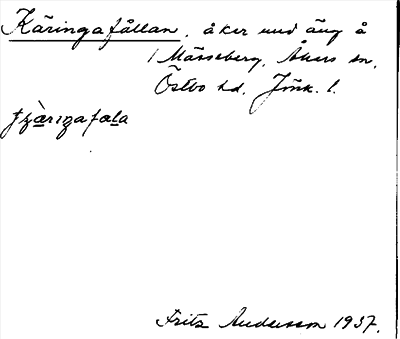 Käringafållan, åker med äng å
1 Mässeberg, Åkers sn,
Östbo hd. Jönk. l.
Fritz Andersson 1937.